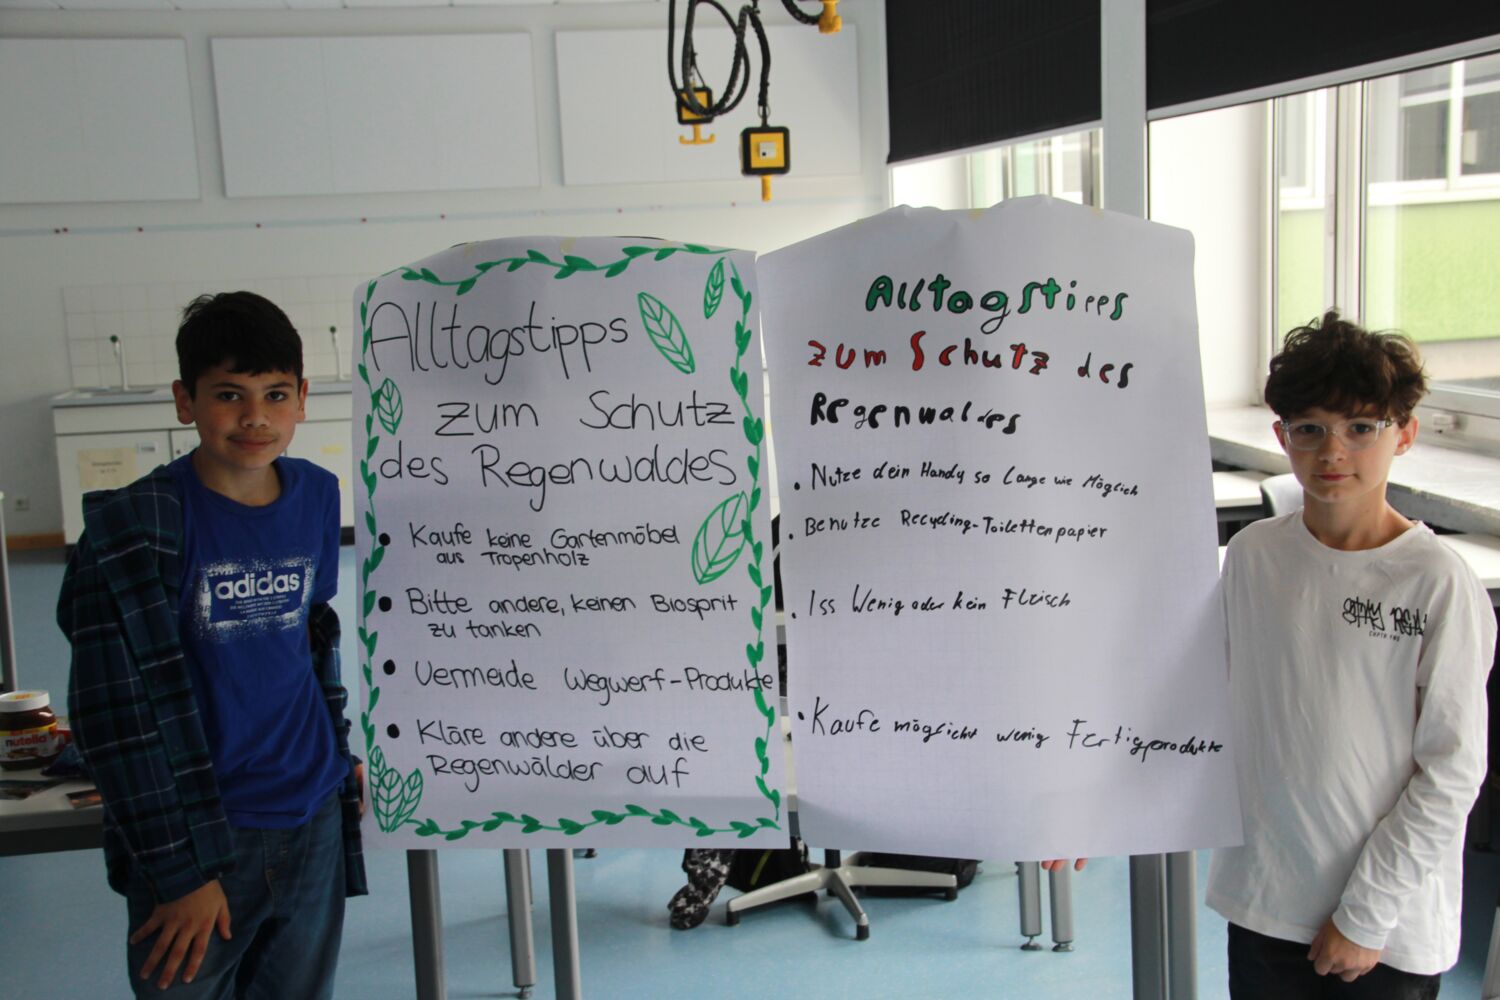 Alltagstipps
zum Schutz
des Regenwaldes
• Kaufe keine Gartenmöbel
aus Tropenholz
• Bitte andere, keinen Biosprit
zu tanken
• Vermeide Wegwerf-Produkte
• Kläre andere über die
Regenwälder auf
Alltagstipps
zum Schutz des
Regenwaldes
• Nutze dein Handy so Lange wie Möglich
• Benutze Recycling-Toilettenpapier
• Iss Wenig oder kein Fleisch
• Kaufe möglichst wenig Fertigprodukte
adidas
nutella
STAY REAL